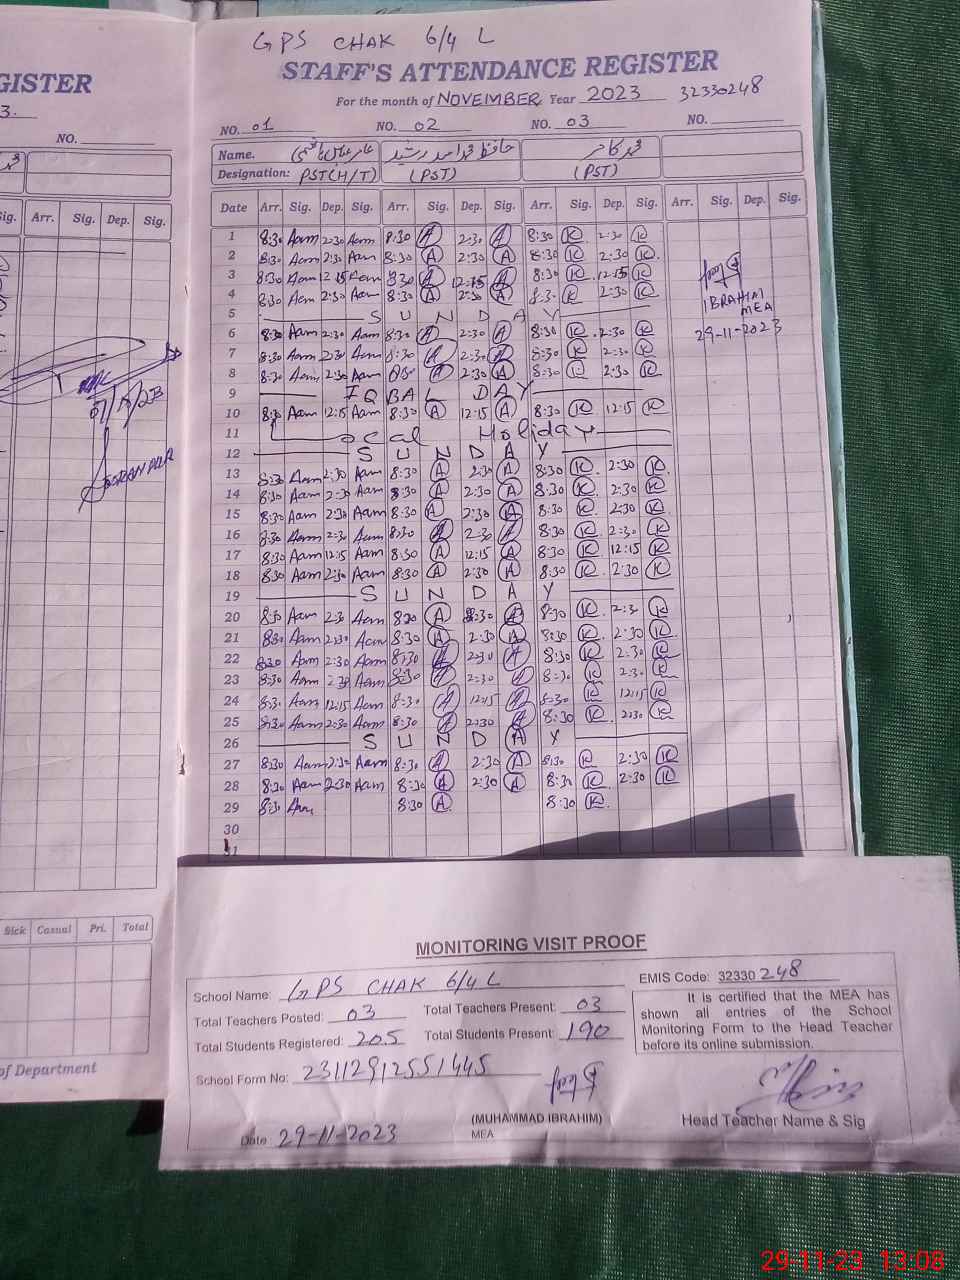 GISTER
3.
NO.
Sig. Arr. Sig. Dep. Sig.
Sick Casual Pri. Total
of Department
GPS CHAK 6/4 L
STAFF'S ATTENDANCE REGISTER
For the month of NOVEMBER Year 2023 32330248
NO. 01 NO. 02 NO. 03 NO.
Name.
Designation: PST(H/T) (PST) (PST)
Date Arr. Sig. Dep. Sig. Arr. Sig. Dep. Sig. Arr. Sig. Dep. Sig. Arr. Sig. Dep. Sig.
1 8:30 Aam 2:30 Aam 8:30 A 2:30 A 8:30 K 2:30 K
2 8:30 Aam 2:30 Aam 8:30 A 2:30 A 8:30 K 2:30 K
3 8:30 Aam 12:15 Aam 8:30 A 12:15 A 8:30 K 12:15 K
4 8:30 Aam 2:30 Aam 8:30 A 2:30 A 8:30 K 2:30 K
5 SUNDAY
6 8:30 Aam 2:30 Aam 8:30 A 2:30 A 8:30 K 2:30 K
7 8:30 Aam 2:30 Aam 8:30 A 2:30 A 8:30 K 2:30 K
8 8:30 Aam 2:30 Aam A 2:30 A 8:30 K 2:30 K
9 IQBAL DAY
10 8:30 Aam 12:15 Aam 8:30 A 12:15 A 8:30 K 12:15 K
11 Local Holiday
12 SUNDAY
13 8:30 Aam 2:30 Aam 8:30 A 2:30 A 8:30 K 2:30 K
14 8:30 Aam 2:30 Aam 8:30 A 2:30 A 8:30 K 2:30 K
15 8:30 Aam 2:30 Aam 8:30 A 2:30 A 8:30 K 2:30 K
16 8:30 Aam 2:30 Aam 8:30 A 2:30 A 8:30 K 2:30 K
17 8:30 Aam 12:15 Aam 8:30 A 12:15 A 8:30 K 12:15 K
18 8:30 Aam 2:30 Aam 8:30 A 2:30 A 8:30 K 2:30 K
19 SUNDAY
20 8:30 Aam 2:30 Aam 8:30 A 2:30 A 8:30 K 2:30 K
21 8:30 Aam 2:30 Aam 8:30 A 2:30 A 8:30 K 2:30 K
22 8:30 Aam 2:30 Aam 8:30 A 2:30 A 8:30 K 2:30 K
23 8:30 Aam 2:30 Aam 8:30 A 2:30 A 8:30 K 2:30 K
24 8:30 Aam 12:15 Aam 8:30 A 12:15 A 8:30 K 12:15 K
25 8:30 Aam 2:30 Aam 8:30 A 2:30 A 8:30 K 2:30 K
26 SUNDAY
27 8:30 Aam 2:30 Aam 8:30 A 2:30 A 8:30 K 2:30 K
28 8:30 Aam 2:30 Aam 8:30 A 2:30 A 8:30 K 2:30 K
29 8:30 Aam 8:30 A 8:30 K
30
31
IBRAHIM
MEA
29-11-2023
MONITORING VISIT PROOF
School Name: GPS CHAK 6/4 L
EMIS Code: 32330248
Total Teachers Posted: 03 Total Teachers Present: 03
Total Students Registered: 205 Total Students Present: 190
School Form No: 23112912551445
It is certified that the MEA has
shown all entries of the School
Monitoring Form to the Head Teacher
before its online submission.
(MUHAMMAD IBRAHIM)
MEA
Head Teacher Name & Sig
Date 29-11-2023
29-11-23 13:08